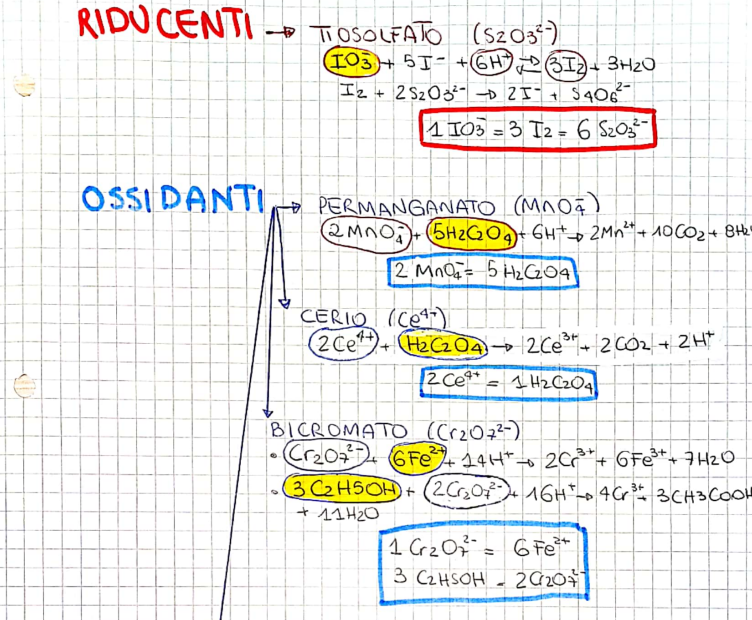 RIDUCENTI → TIOSOLFATO (S2O3²⁻)
IO3⁻ + 5I⁻ + 6H⁺ ⇄ 3I2 + 3H2O
I2 + 2S2O3²⁻ → 2I⁻ + S4O6²⁻
1 IO3⁻ = 3 I2 = 6 S2O3²⁻
OSSIDANTI → PERMANGANATO (MnO4⁻)
2MnO4⁻ + 5H2C2O4 + 6H⁺ → 2Mn²⁺ + 10CO2 + 8H2
2 MnO4⁻ = 5 H2C2O4
CERIO (Ce⁴⁺)
2Ce⁴⁺ + H2C2O4 → 2Ce³⁺ + 2CO2 + 2H⁺
2Ce⁴⁺ = 1 H2C2O4
BICROMATO (Cr2O7²⁻)
• Cr2O7²⁻ + 6Fe²⁺ + 14H⁺ → 2Cr³⁺ + 6Fe³⁺ + 7H2O
• 3 C2H5OH + 2Cr2O7²⁻ + 16H⁺ → 4Cr³⁺ 3CH3COOH
+ 11H2O
1 Cr2O7²⁻ = 6 Fe²⁺
3 C2H5OH = 2Cr2O7²⁻